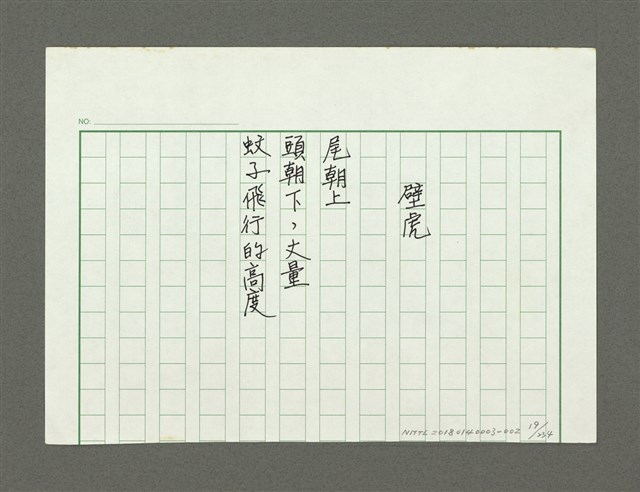 NO:
壁虎
尾朝上
頭朝下，丈量
蚊子飛行的高度
NMTL20180140003-002
19/234